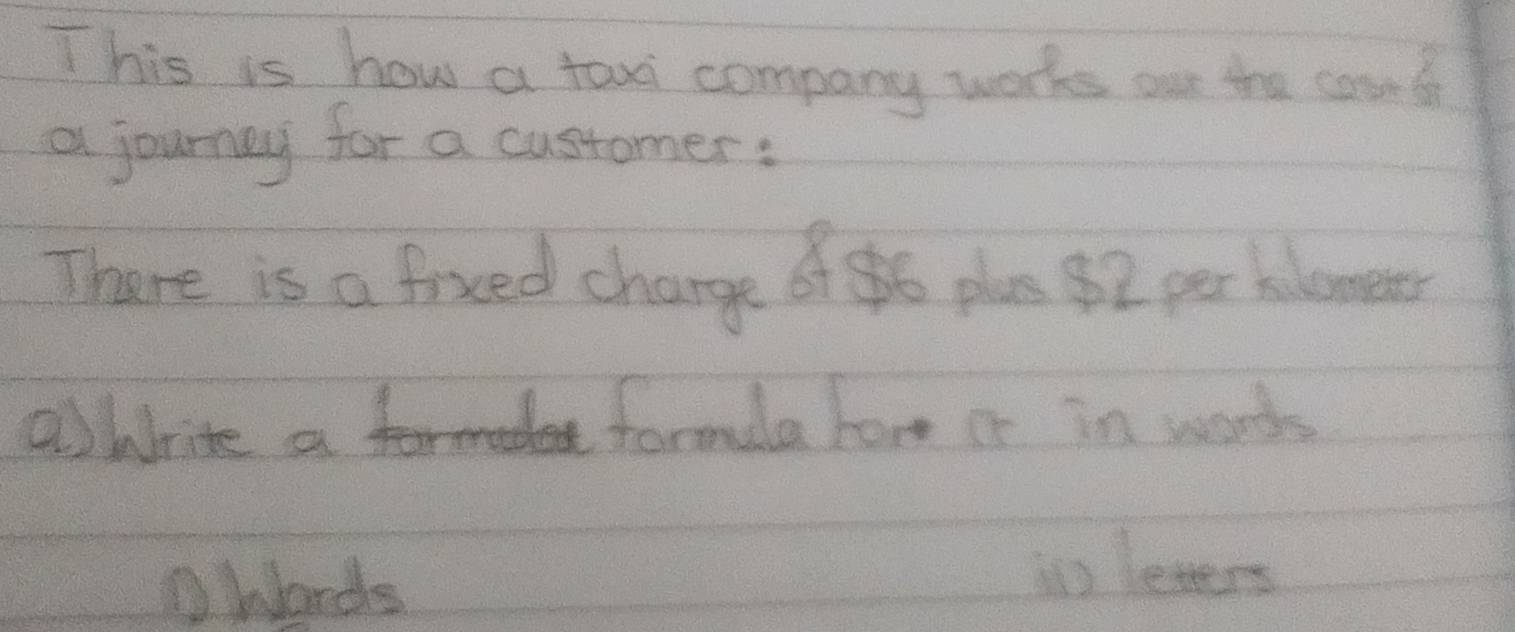 This is how a taxi company works out the cost of
a journey for a customer:
There is a fixed charge of $6 plus $2 per kilometer
a) Write a formula for it in words
i) Words ii) letters